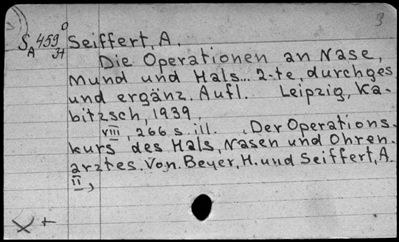 3
S 459 0
A 34
Seiffert, A.
Die Operationen an Nase,
Mund und Hals... 2-te, durchges
und ergänz. Aufl. Leipzig, Ka-
bitzsch, 1939,
VIII, 266 s. ill. (Der Operations-
kurs des Hals, Nasen und Ohren
arztes. Von Beyer, H. und Seiffert, A.
II,
X+